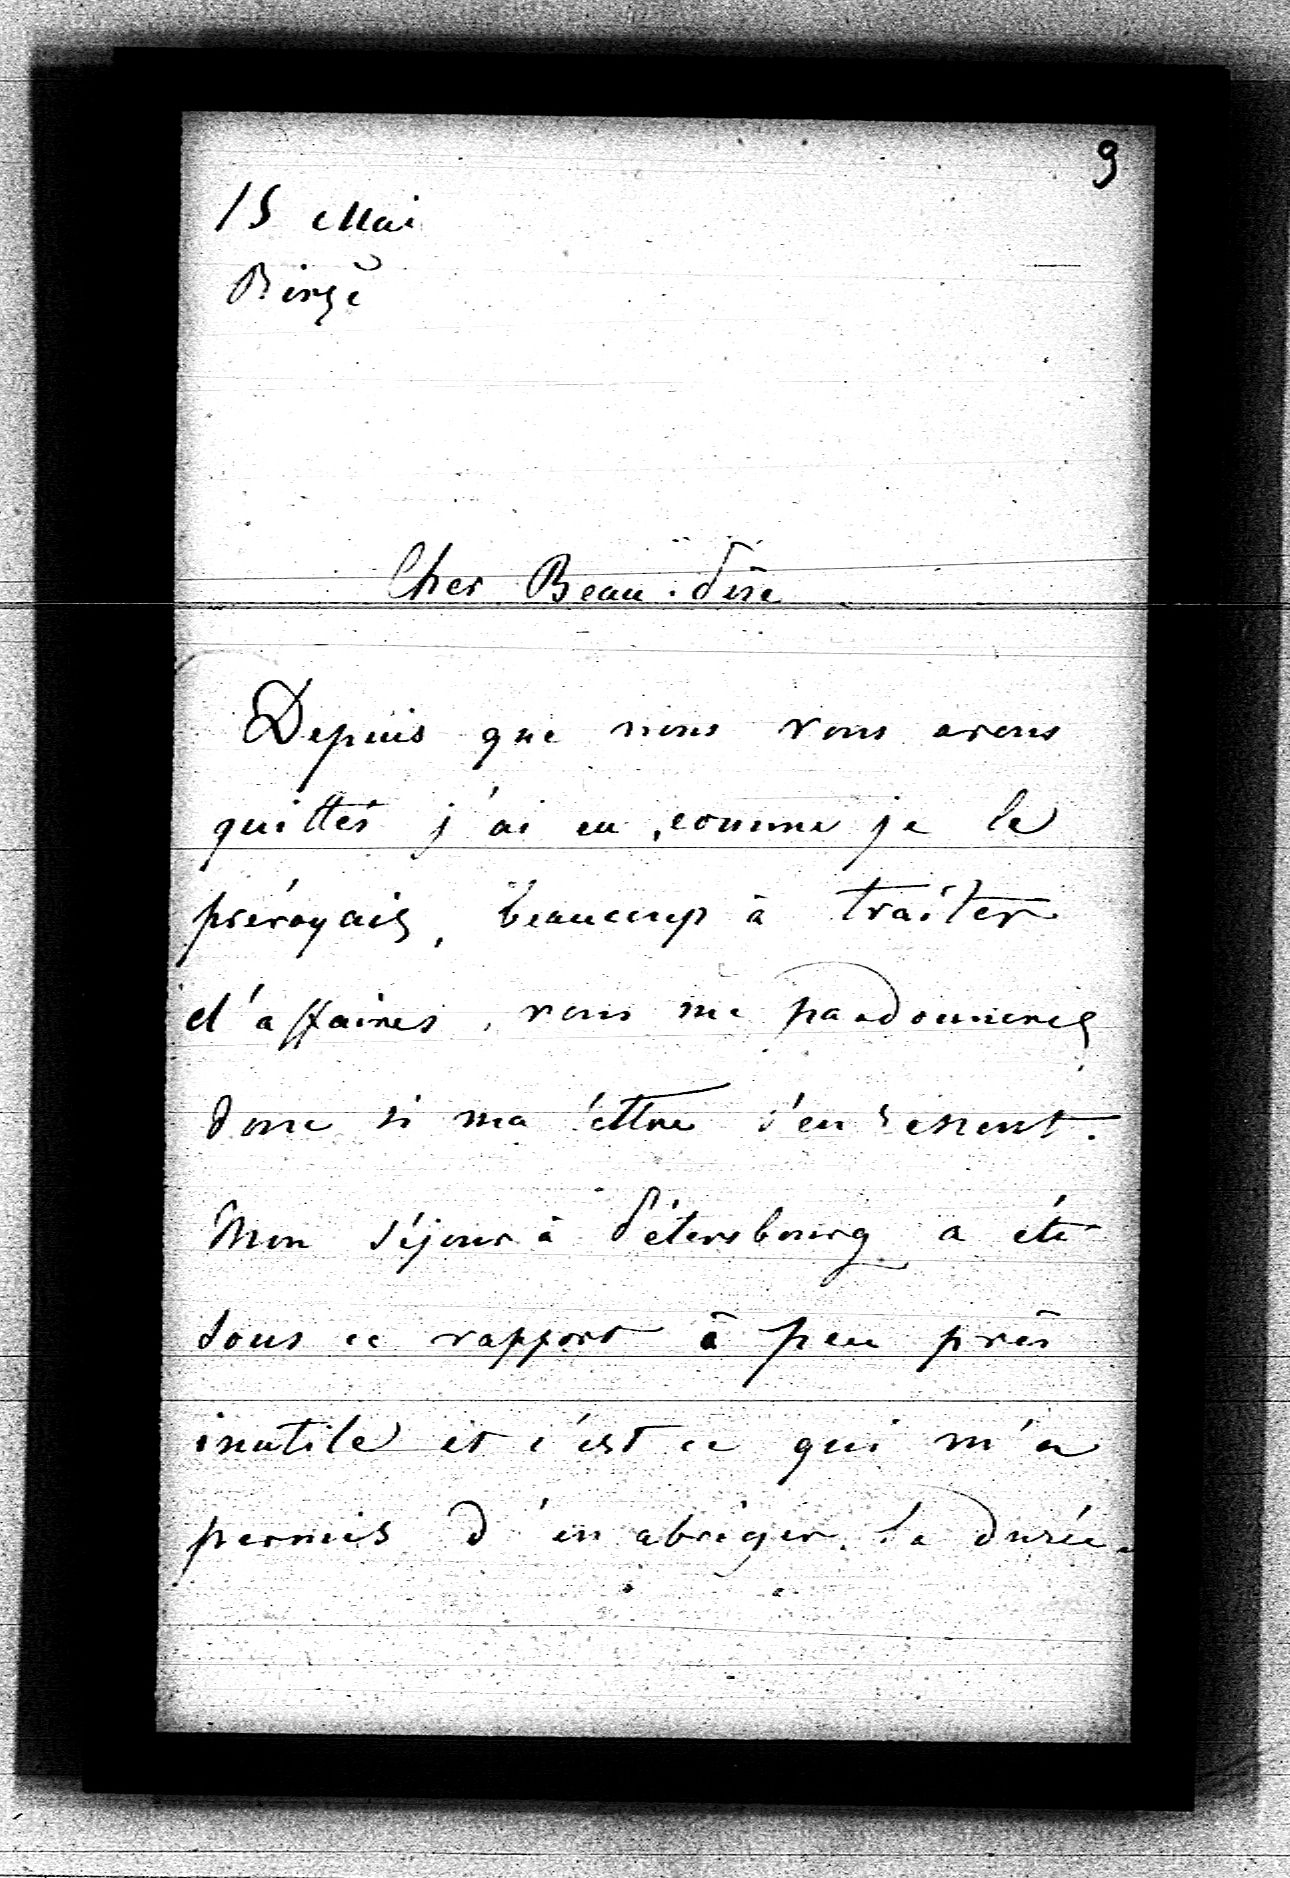 9
15 Mai
Birzĕ
Cher Beau-Père
Depuis que nous vous avons
quittés j'ai eu, comme je le
prévoyais, beaucoup à traiter
d'affaires, vous me pardonnerez
donc si ma lettre s'en ressent.
Mon séjour à Pétersbourg a été
sous ce rapport à peu près
inutile et c'est ce qui m'a
permis d'en abréger la durée.